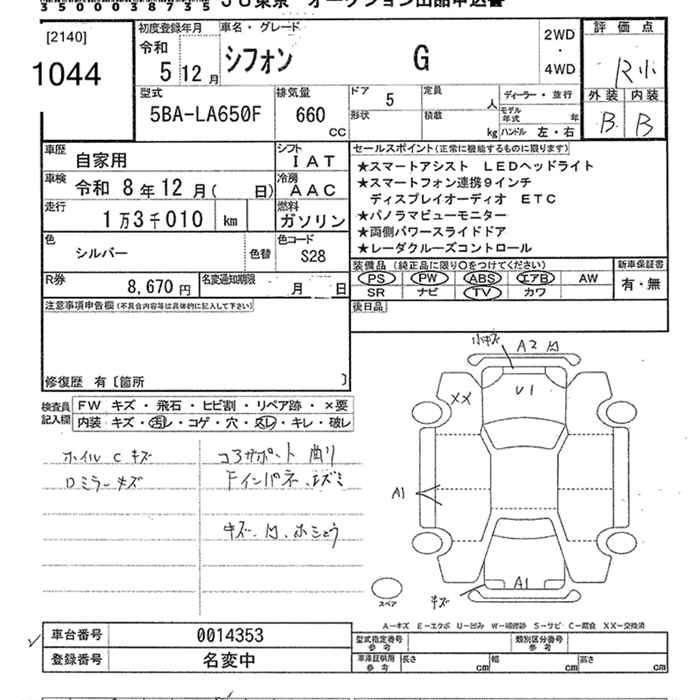 35000358735 JU東京 オークション出品申込書
[2140]
1044
初度登録年月
令和 5 12月
車名・グレード
シフォン G
2WD
・
4WD
評価点
R小
外装 内装
B B
型式
5BA-LA650F
排気量
660 CC
ドア 5
形状
定員 人
積載 kg
ディーラー・並行
モデル年式 年
ハンドル 左・右
車歴 自家用
シフト IAT
車検 令和 8年 12月( 日)
冷房 AAC
走行 1万3千010 km
燃料 ガソリン
色 シルバー 色替
色コード S28
R券 8,670円
名変通知期限 月 日
セールスポイント(正常に機能するものに限ります)
★スマートアシスト LEDヘッドライト
★スマートフォン連携9インチ
ディスプレイオーディオ ETC
★パノラマビューモニター
★両側パワースライドドア
★レーダクルーズコントロール
装備品(純正品に限り○をつけてください)
PS PW ABS エアB AW
SR ナビ TV カワ
新車保証書
有・無
後日品
注意事項申告欄(不具合内容等は具体的に記入して下さい)
修復歴 有〔箇所 〕
検査員記入欄
FW キズ・飛石・ヒビ割・リペア跡・×要
内装 キズ・汚レ・コゲ・穴・スレ・キレ・破レ
ホイルCキズ
Dミラーキズ
コアサポート 曲り
Fインパネ
キズ、凹、ホシュウ
小キズ A2 凹
XX U1
A1
A1
キズ
スペア
A-キズ E-エクボ U-凹み W-補修跡 S-サビ C-腐食 XX-交換済
車台番号 0014353
登録番号 名変中
型式指定番号 参考
類別区分番号 参考
車庫証明用 参考
長さ cm 幅 cm 高さ cm